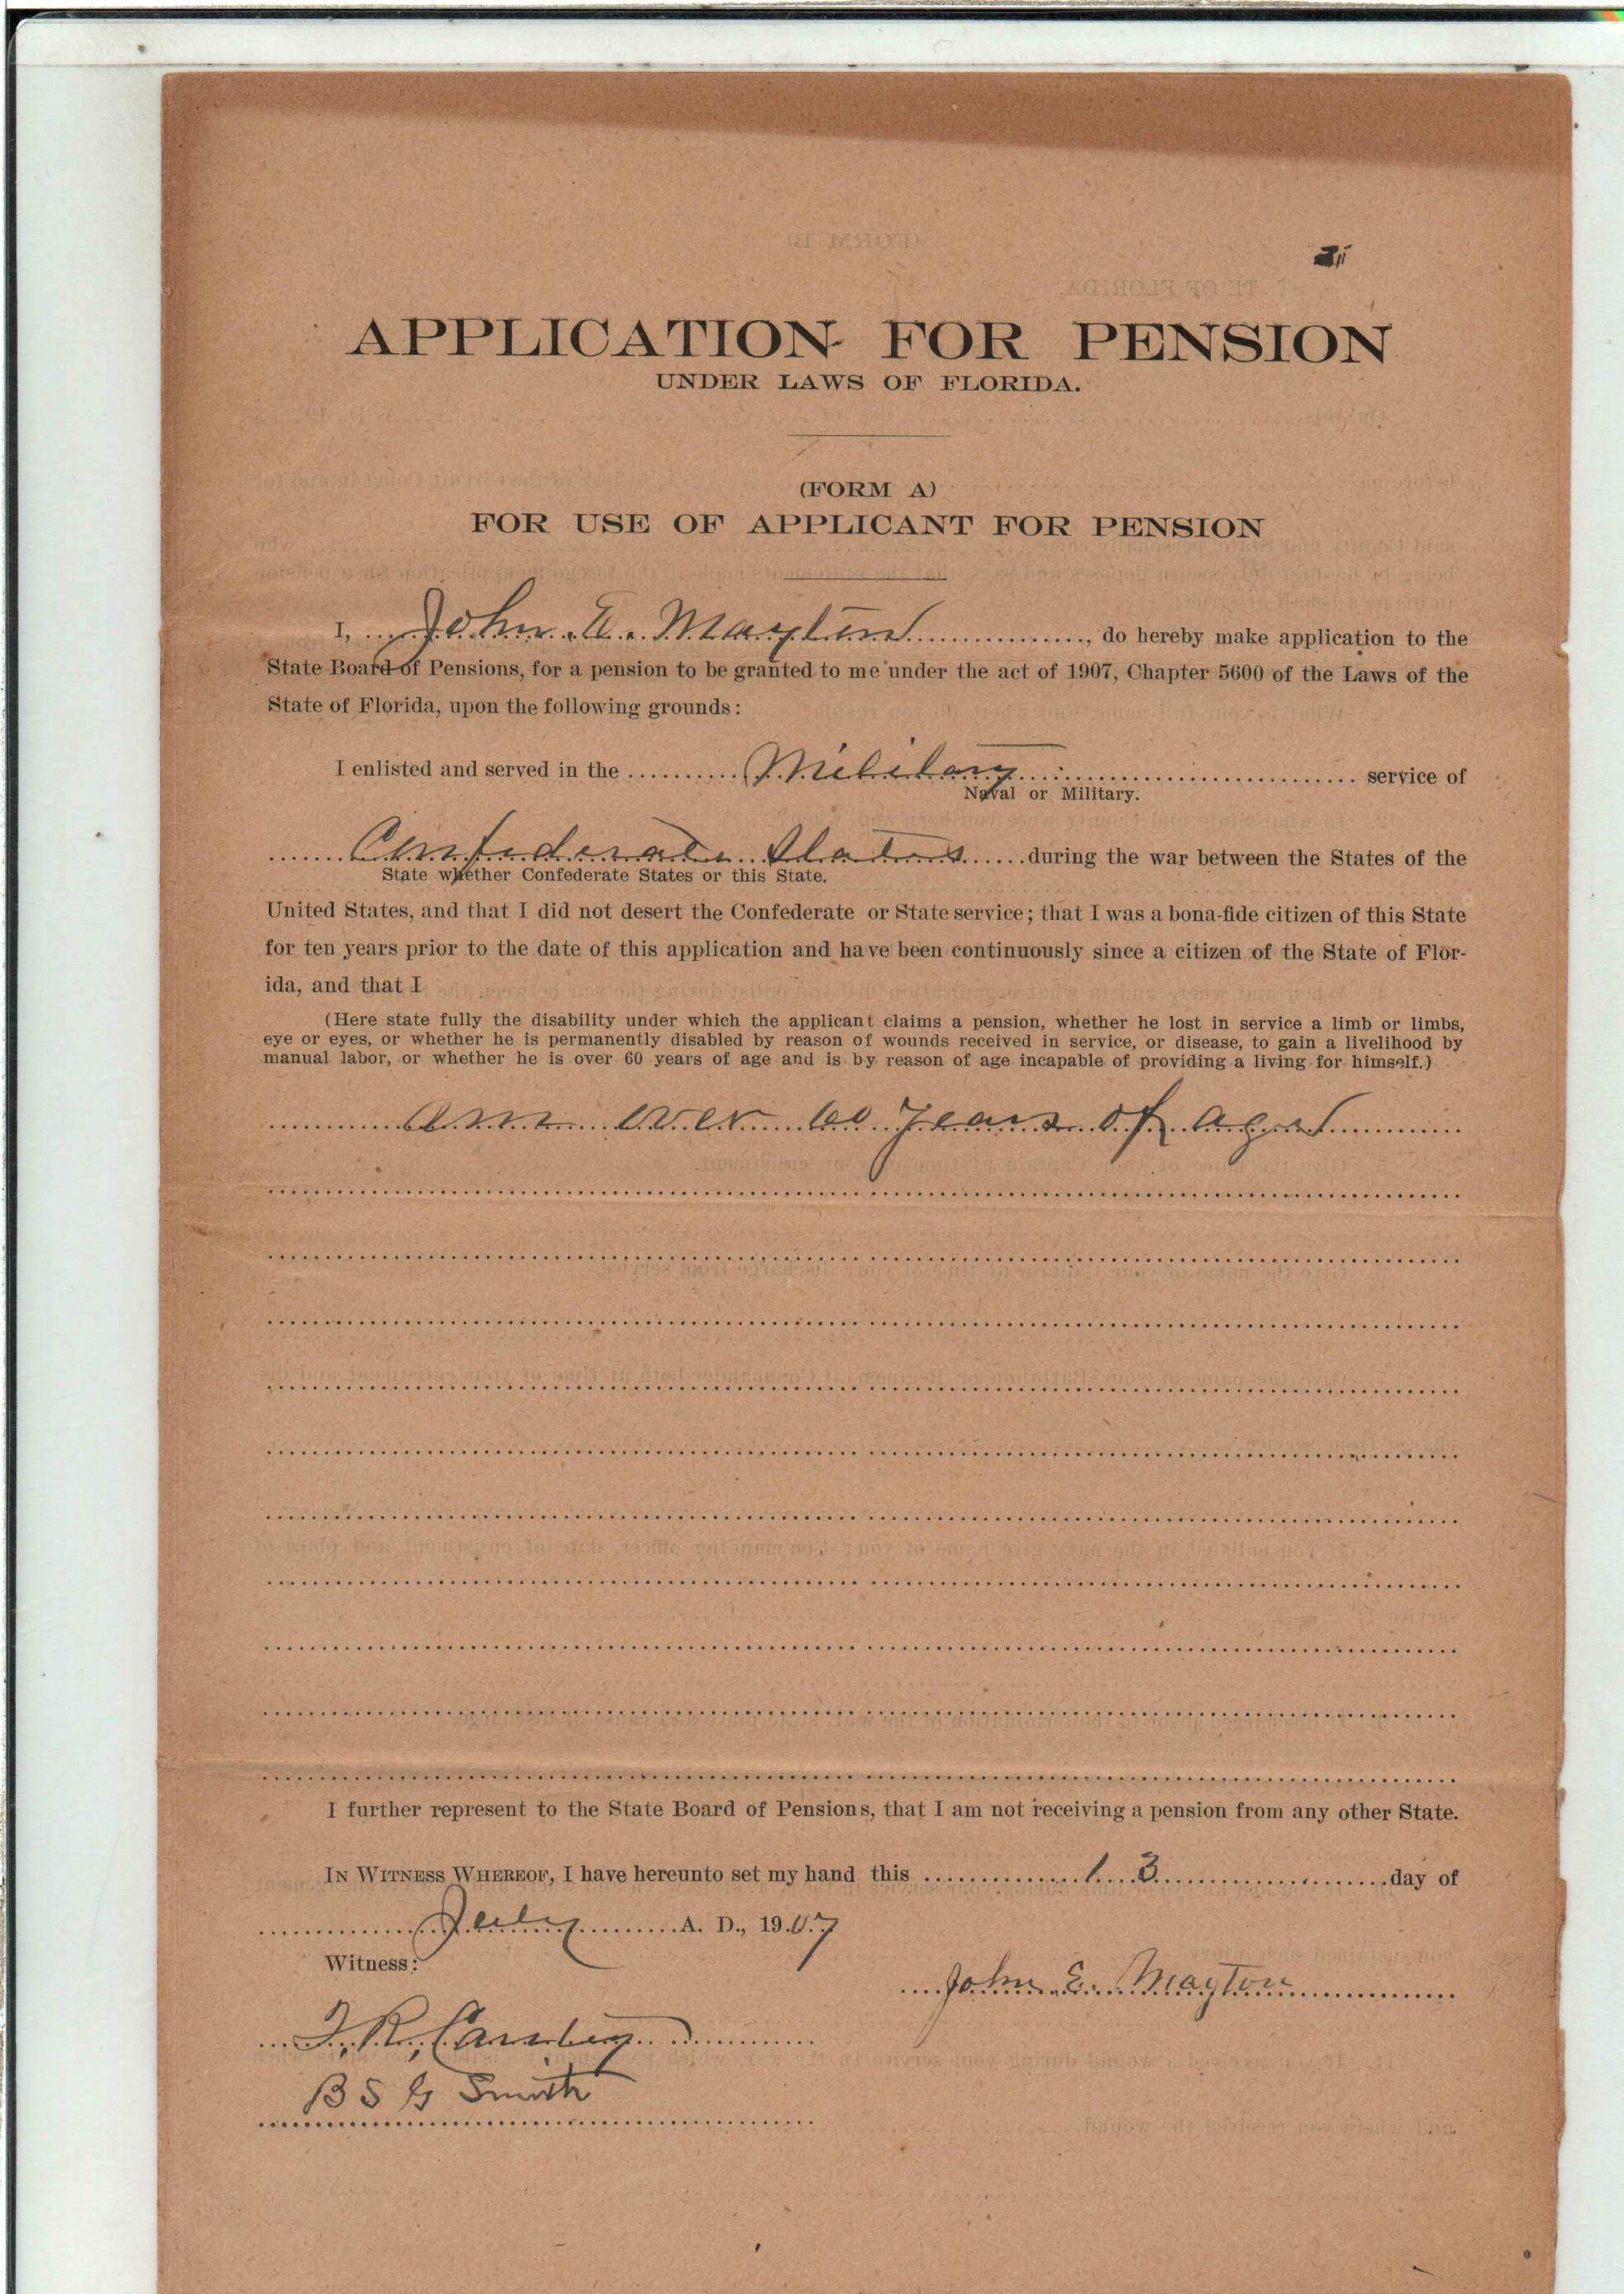 APPLICATION FOR PENSION
UNDER LAWS OF FLORIDA.
(FORM A)
FOR USE OF APPLICANT FOR PENSION
I, John E. Mayton, do hereby make application to the
State Board of Pensions, for a pension to be granted to me under the act of 1907, Chapter 5600 of the Laws of the
State of Florida, upon the following grounds:
I enlisted and served in the Military service of
Naval or Military.
Confederate States during the war between the States of the
State whether Confederate States or this State.
United States, and that I did not desert the Confederate or State service; that I was a bona-fide citizen of this State
for ten years prior to the date of this application and have been continuously since a citizen of the State of Flor-
ida, and that I
(Here state fully the disability under which the applicant claims a pension, whether he lost in service a limb or limbs,
eye or eyes, or whether he is permanently disabled by reason of wounds received in service, or disease, to gain a livelihood by
manual labor, or whether he is over 60 years of age and is by reason of age incapable of providing a living for himself.)
am over 60 years of age
I further represent to the State Board of Pensions, that I am not receiving a pension from any other State.
IN WITNESS WHEREOF, I have hereunto set my hand this 13 day of
July A. D., 1907
Witness:
John E. Mayton
B S G Smith